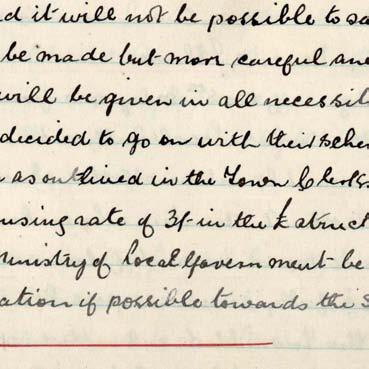 d it will not be possible to sa
be made but more careful and
will be given in all necessit
decided to go on with their schem
as outlined in the Town Clerks
using rate of 3/- in the £ a truct
ministry of Local Government be
ation if possible towards the s